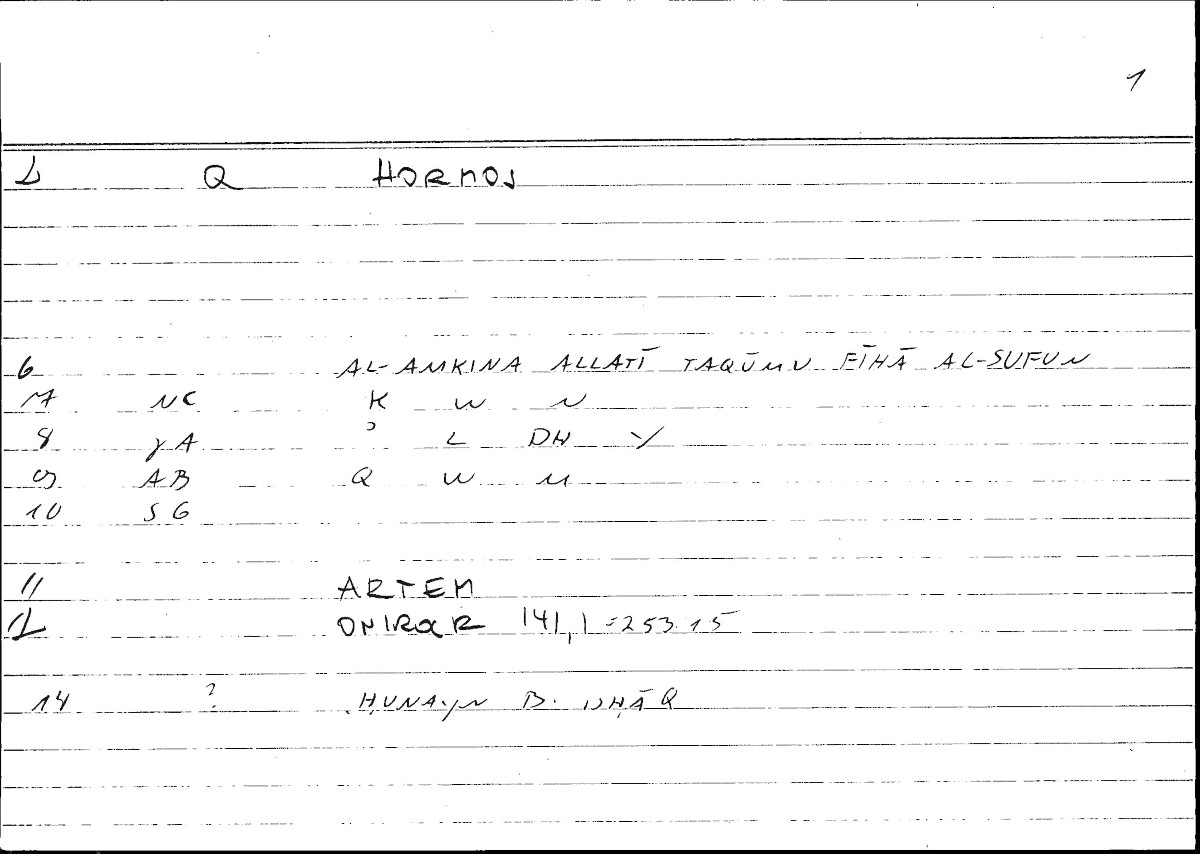 1
2 Q HORMOS
6 AL-AMKINA ALLATĪ TAQŪMU FĪHĀ AL-SUFUN
7 NC K W N
8 γA ʾ L DH Y
9 AB Q W M
10 SG
11 ARTEM
12 ONIROCR 141,1=253.15
14 ? ḤUNAYN B. ISḤĀQ